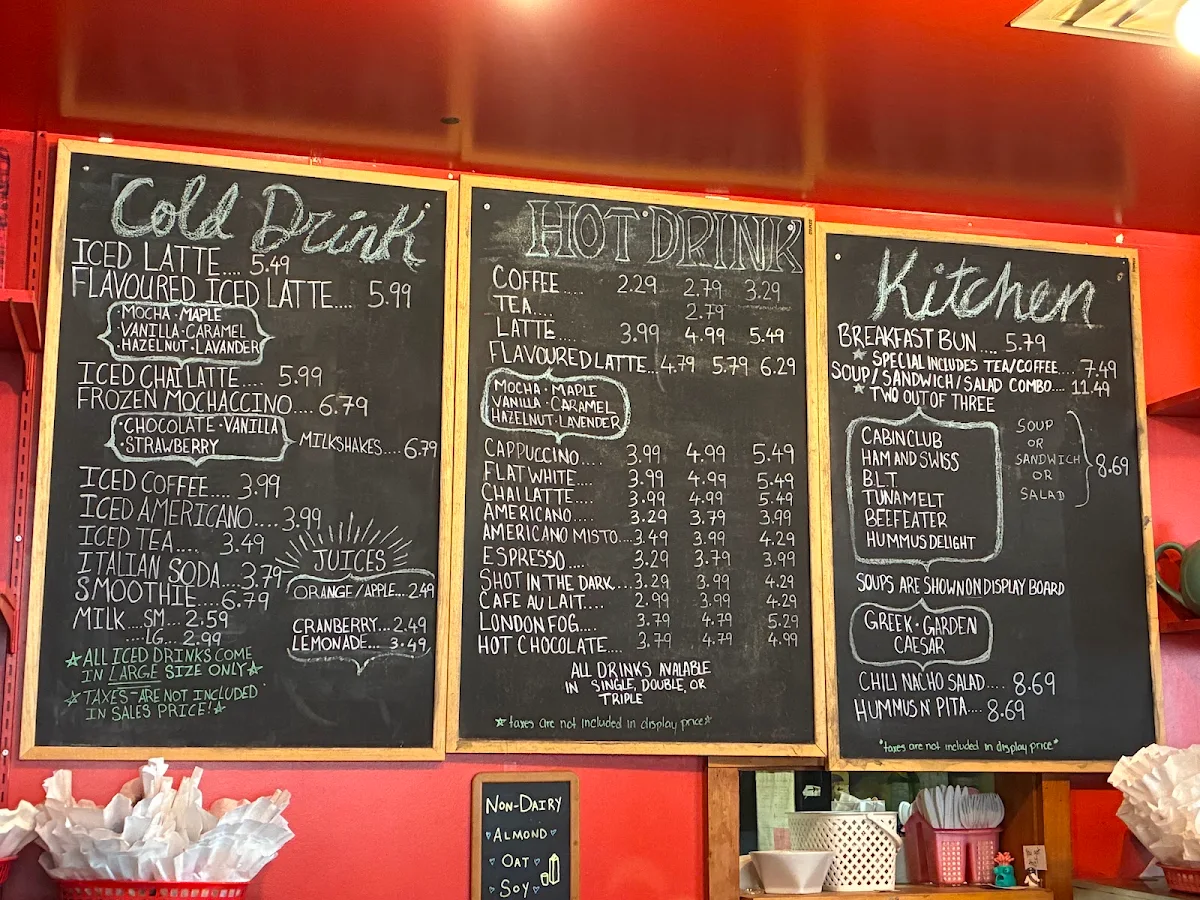 Cold Drink
ICED LATTE.... 5.49
FLAVOURED ICED LATTE.... 5.99
·MOCHA·MAPLE
·VANILLA·CARAMEL
·HAZELNUT·LAVANDER
ICED CHAI LATTE.... 5.99
FROZEN MOCHACCINO.... 6.79
·CHOCOLATE·VANILLA
·STRAWBERRY
MILKSHAKES....6.79
ICED COFFEE.... 3.99
ICED AMERICANO.... 3.99
ICED TEA.... 3.49
ITALIAN SODA...3.79
SMOOTHIE....6.79
MILK...SM... 2.59
....LG... 2.99
JUICES
ORANGE/APPLE...2.49
CRANBERRY...2.49
LEMONADE... 3.49
☆ALL ICED DRINKS COME
IN LARGE SIZE ONLY☆
☆TAXES ARE NOT INCLUDED
IN SALES PRICE!☆
HOT DRINK
COFFEE..... 2.29 2.79 3.29
TEA.... 2.79
LATTE.... 3.99 4.99 5.49
FLAVOURED LATTE...4.79 5.79 6.29
MOCHA·MAPLE
VANILLA·CARAMEL
HAZELNUT·LAVENDER
CAPPUCCINO.... 3.99 4.99 5.49
FLAT WHITE.... 3.99 4.99 5.49
CHAI LATTE.... 3.99 4.99 5.49
AMERICANO.... 3.29 3.79 3.99
AMERICANO MISTO...3.49 3.99 4.29
ESPRESSO.... 3.29 3.79 3.99
SHOT IN THE DARK...3.29 3.99 4.29
CAFE AU LAIT.... 2.99 3.99 4.29
LONDON FOG.... 3.79 4.79 5.29
HOT CHOCOLATE.... 3.79 4.79 4.99
ALL DRINKS AVALABLE
IN SINGLE, DOUBLE, OR
TRIPLE
☆taxes are not included in display price☆
Kitchen
BREAKFAST BUN.... 5.79
☆ SPECIAL INCLUDES TEA/COFFEE.... 7.49
SOUP/SANDWICH/SALAD COMBO.... 11.49
☆ TWO OUT OF THREE
CABIN CLUB
HAM AND SWISS
B.L.T.
TUNA MELT
BEEFEATER
HUMMUS DELIGHT
SOUP
OR
SANDWICH
OR
SALAD
8.69
SOUPS ARE SHOWN ON DISPLAY BOARD
GREEK·GARDEN
CAESAR
CHILI NACHO SALAD.... 8.69
HUMMUS N' PITA.... 8.69
*taxes are not included in display price*
NON-DAIRY
ALMOND
OAT
SOY